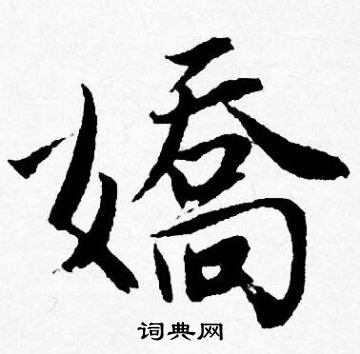 嬌
词典网